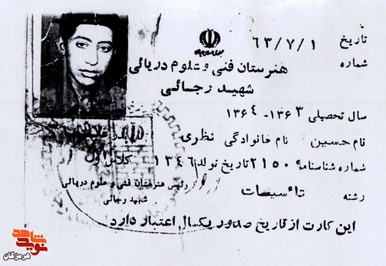 تاریخ ۶۳/۷/۱
شماره
هنرستان فنی و علوم دریائی
شهید رجائی
سال تحصیلی ۱۳۶۳ - ۱۳۶۴
نام حسین نام خانوادگی نظری
شماره شناسنامه ۲۱۵۰۹ تاریخ تولد ۱۳۴۶ کلاس اول
رشته تاسیسات
رئیس هنرستان فنی و علوم دریائی
شهید رجائی
این کارت از تاریخ صدور یکسال اعتبار دارد
نوید شاهد
هرمزگان